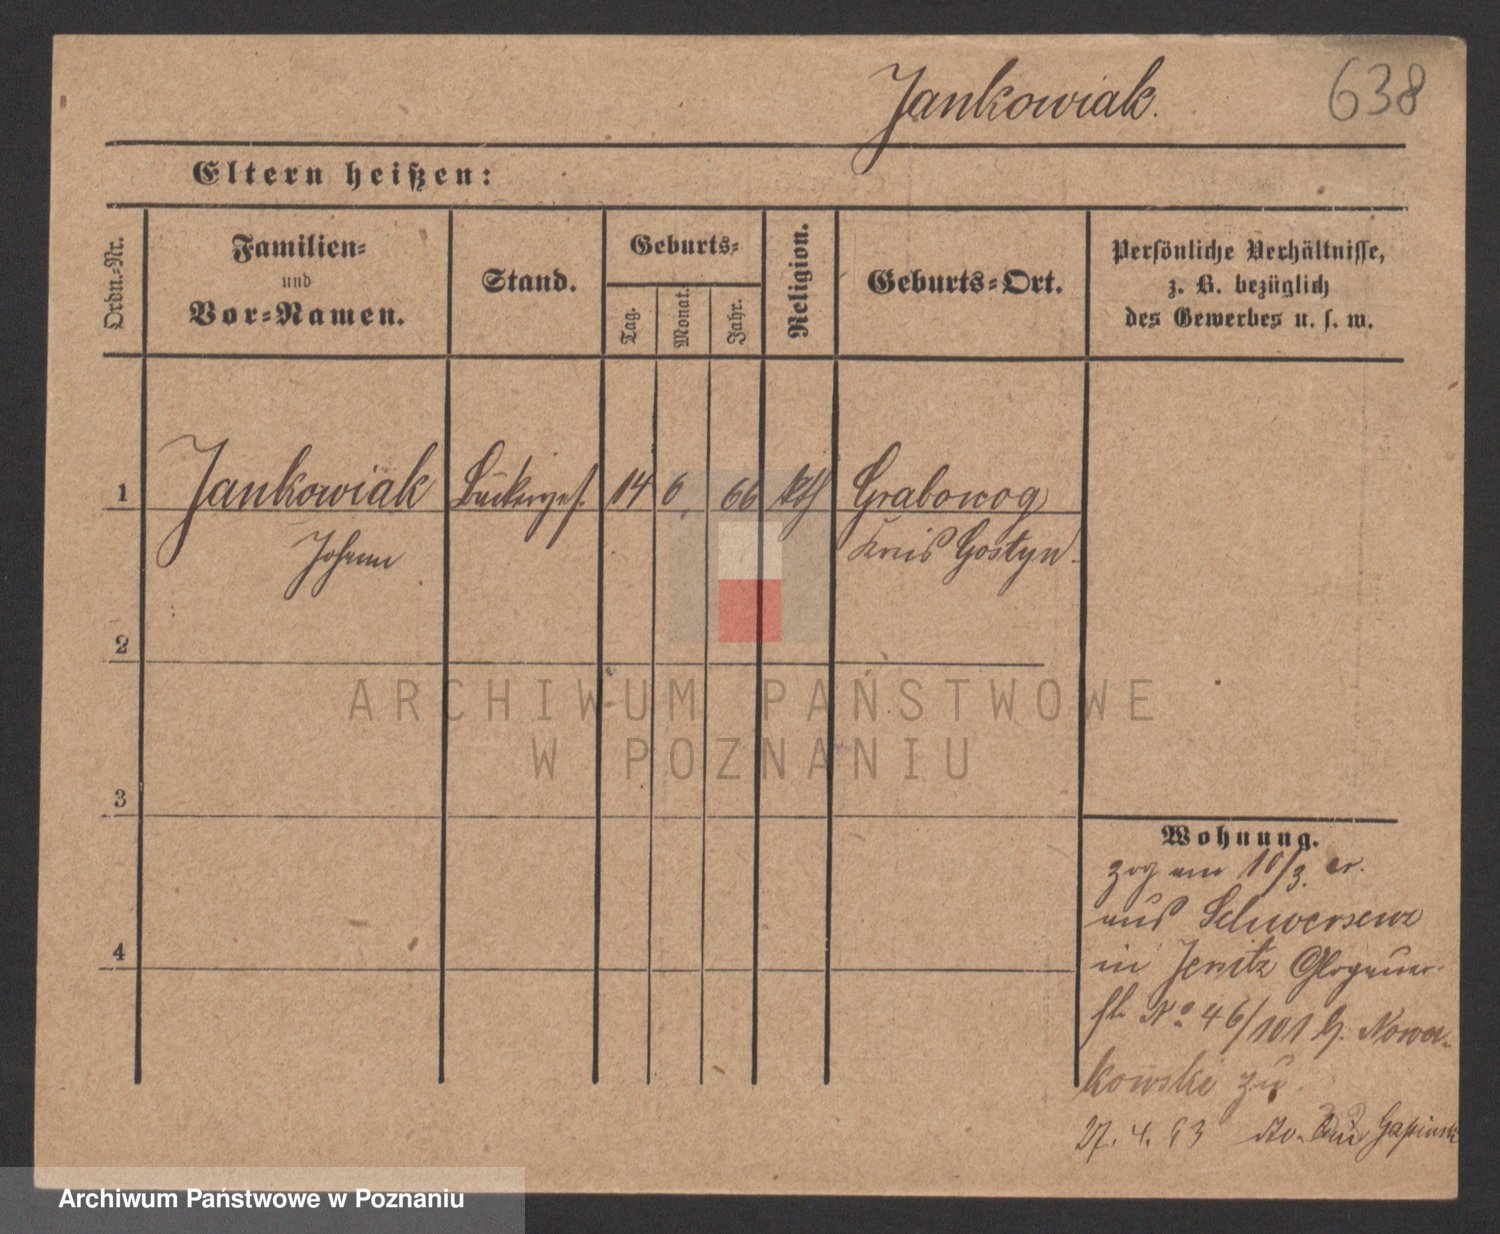 Jankowiak.
638
Eltern heißen:
Ordn.-Nr.
Familien-
und
Vor-Namen.
Stand.
Geburts-
Tag.
Monat.
Jahr.
Religion.
Geburts-Ort.
Persönliche Verhältnisse,
z. B. bezüglich
des Gewerbes u. s. w.
1
Jankowiak
Johann
Bäckerges.
14
6.
66
kth
Grabonog
Kreis Gostyn.
2
3
4
ARCHIWUM PAŃSTWOWE
W POZNANIU
Wohnung.
zog am 10/3. cr.
aus Schwersenz
in Jersitz Glogauer-
st. No. 46/101 b. Nowa-
kowski zu.
27. 4. 93
Archiwum Państwowe w Poznaniu